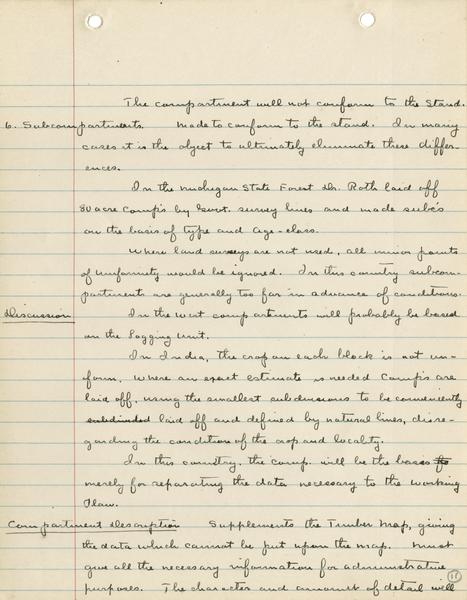 The compartment will not conform to the stand.
6. Subcompartments. Made to conform to the stand. In many
cases it is the object to ultimately eliminate these differ-
ences.
In the Michigan State Forest Dr. Roth laid off
80 acre Comp's by Govt. survey lines and made subc's
on the basis of type and age-class.
Where land surveys are not used, all minor points
of uniformity would be ignored. In this country subcom-
partments are generally too far in advance of conditions.
Discussion In the West compartments will probably be based
on the Logging Unit.
In India, the crop on each block is not un-
form. Where an exact estimate is needed Comp's are
laid off, using the smallest subdivisions to be conveniently
subdivided laid off and defined by natural lines, disre-
garding the condition of the crop and locality.
In this country, the comp. will be the basis
merely for separating the data necessary to the Working
Plan.
Compartment Description Supplements the Timber Map, giving
the data which cannot be put upon the map. Must
give all the necessary information for administrative
purposes. The character and amount of detail will
11